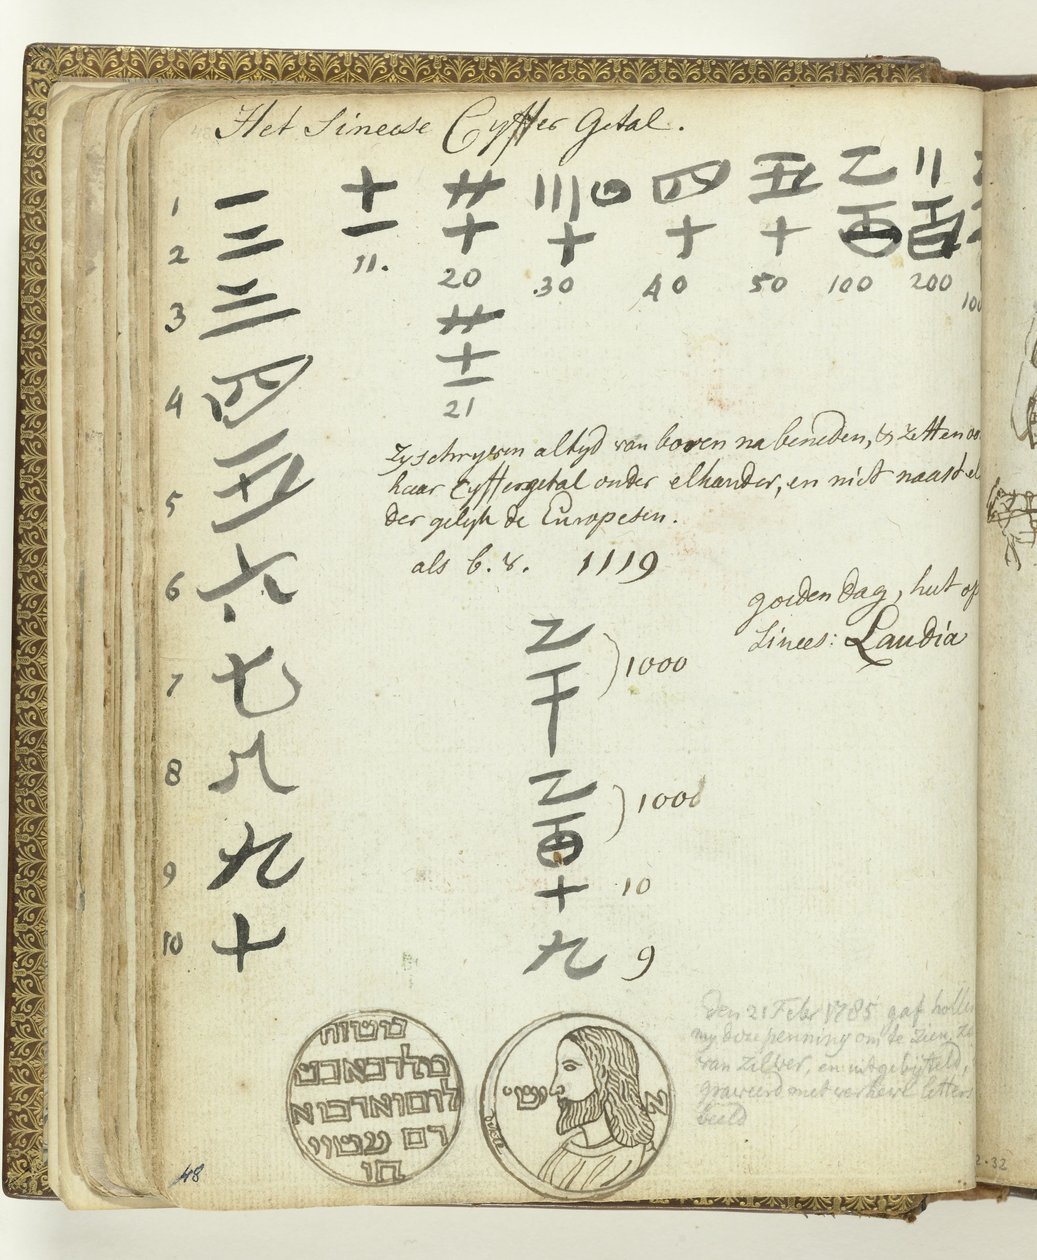 Het Sineese Cyffer Getal.
1 一
2 二
3 三
4 四
5 五
6 六
7 七
8 八
9 九
10 十
十
一
11.
廿
十
20
廿
十
一
21
川 四
十
30
四
十
40
五
十
50
乙
百
100
II
百
200
100
Zy schryven altyd van boven na beneden, & zetten oo
haar Cyffergetal onder elkander, en niet naast el
der gelyk de Europesen.
als b. v. 1119
乙
千
1000
乙
百
1000
十 10
九 9
goeden dag, hiet op
Sinees: Laudia
לוסוארבוא
חו
ישי
א
den 21 Febr 1785 gaf holle
my deze penning om te zien, ze
van zilver, en uitgebyteld,
graveerd met verheve letters
beeld
48
2.32